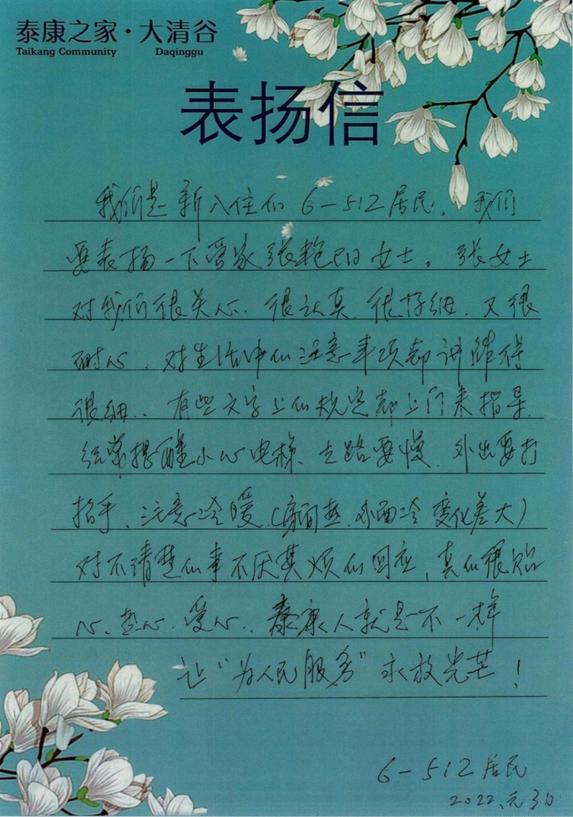 泰康之家·大清谷
Taikang Community Daqinggu
表扬信
我们是新入住的6-512居民,我们
要表扬一下管家张艳阳女士。张女士
对我们很关心、很认真、很仔细、又很
耐心,对生活中的注意事项都讲解得
很细..有些文字上的规定都上门来指导
经常提醒小心电梯、走路要慢、外出要打
招手、注意冷暖(房间热、外面冷变化差大)
对不清楚的事不厌其烦的回应,真的很贴
心、热心、爱心..泰康人就是不一样
让"为人民服务"永放光芒!
6-512居民
2022.元.3日